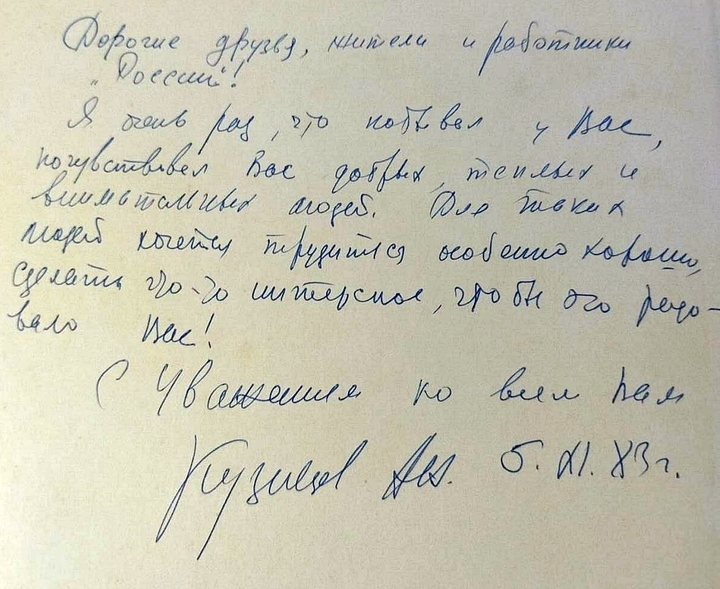 Дорогие друзья, жители и работники
"России"!
Я очень рад, что побывал у Вас,
почувствовал Вас добрых, теплых и
внимательных людей. Для таких
людей хочется трудится особенно хорошо,
сделать что-то интересное, чтобы это радо-
вало Вас!
С Уважением ко всем Вам
Кузнецов Ан. 5.XI.83г.